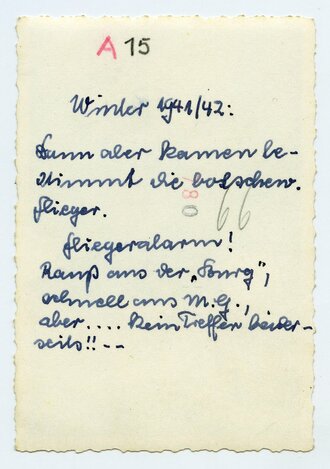 A 15
Winter 1941/42:
Dann aber kamen be-
stimmt die bolschew.
Flieger.
780
66
Fliegeralarm!
Rauß aus der „Burg",
schnell ans M.G.,
aber.... kein Treffer beider-
seits!! --